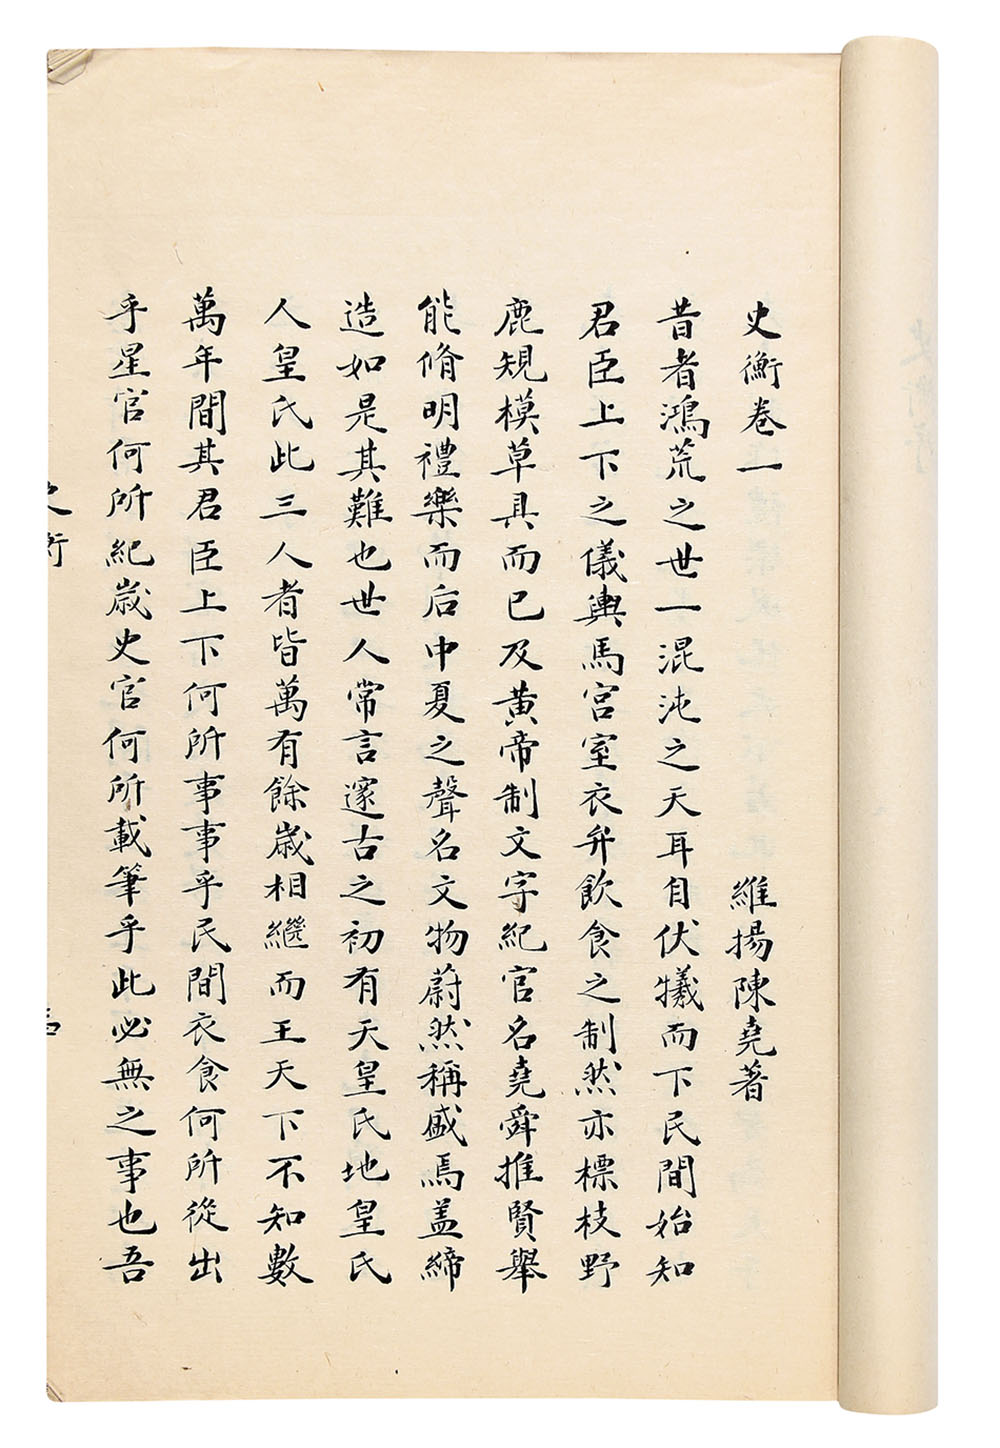 史衡卷一
維揚陳堯著
昔者鴻荒之世一混沌之天耳自伏犧而下民間始知
君臣上下之儀輿馬宮室衣弁飲食之制然亦標枝野
鹿規模草具而已及黃帝制文字紀官名堯舜推賢舉
能脩明禮樂而后中夏之聲名文物蔚然稱盛焉盖締
造如是其難也世人常言邃古之初有天皇氏地皇氏
人皇氏此三人者皆萬有餘歲相繼而王天下不知數
萬年間其君臣上下何所事事乎民間衣食何所從出
乎星官何所紀歲史官何所載筆乎此必無之事也吾
史衡